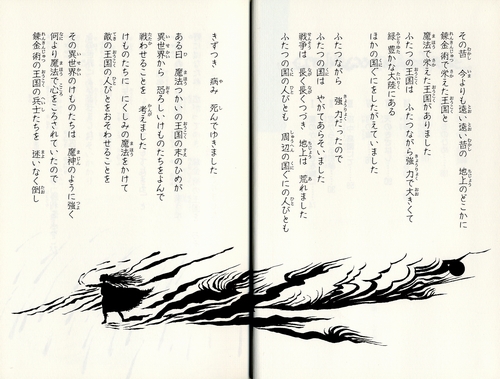 その昔　今よりも遠い遠い昔の　地上のどこかに
錬金術で栄えた王国と
魔法で栄えた王国がありました
ふたつの王国は　ふたつながら強力で大きくて
緑豊かな大陸にある
ほかの国ぐにをしたがえていました
ふたつながら　強力だったので
ふたつの国は　やがてあらそいました
戦争は　長く長くつづき　地上は　荒れました
ふたつの国の人びとも　周辺の国ぐにの人びとも
きずつき　病み　死んでゆきました
ある日　魔法つかいの王国の末のひめが
異世界から　恐ろしいけものたちをよんで
戦わせることを　考えました
けものたちに　にくしみの魔法をかけて
敵の王国の人びとをおそわせることを
その異世界のけものたちは　魔神のように強く
何より魔法で心をころされていたので
錬金術の王国の兵士たちを　迷いなく倒し